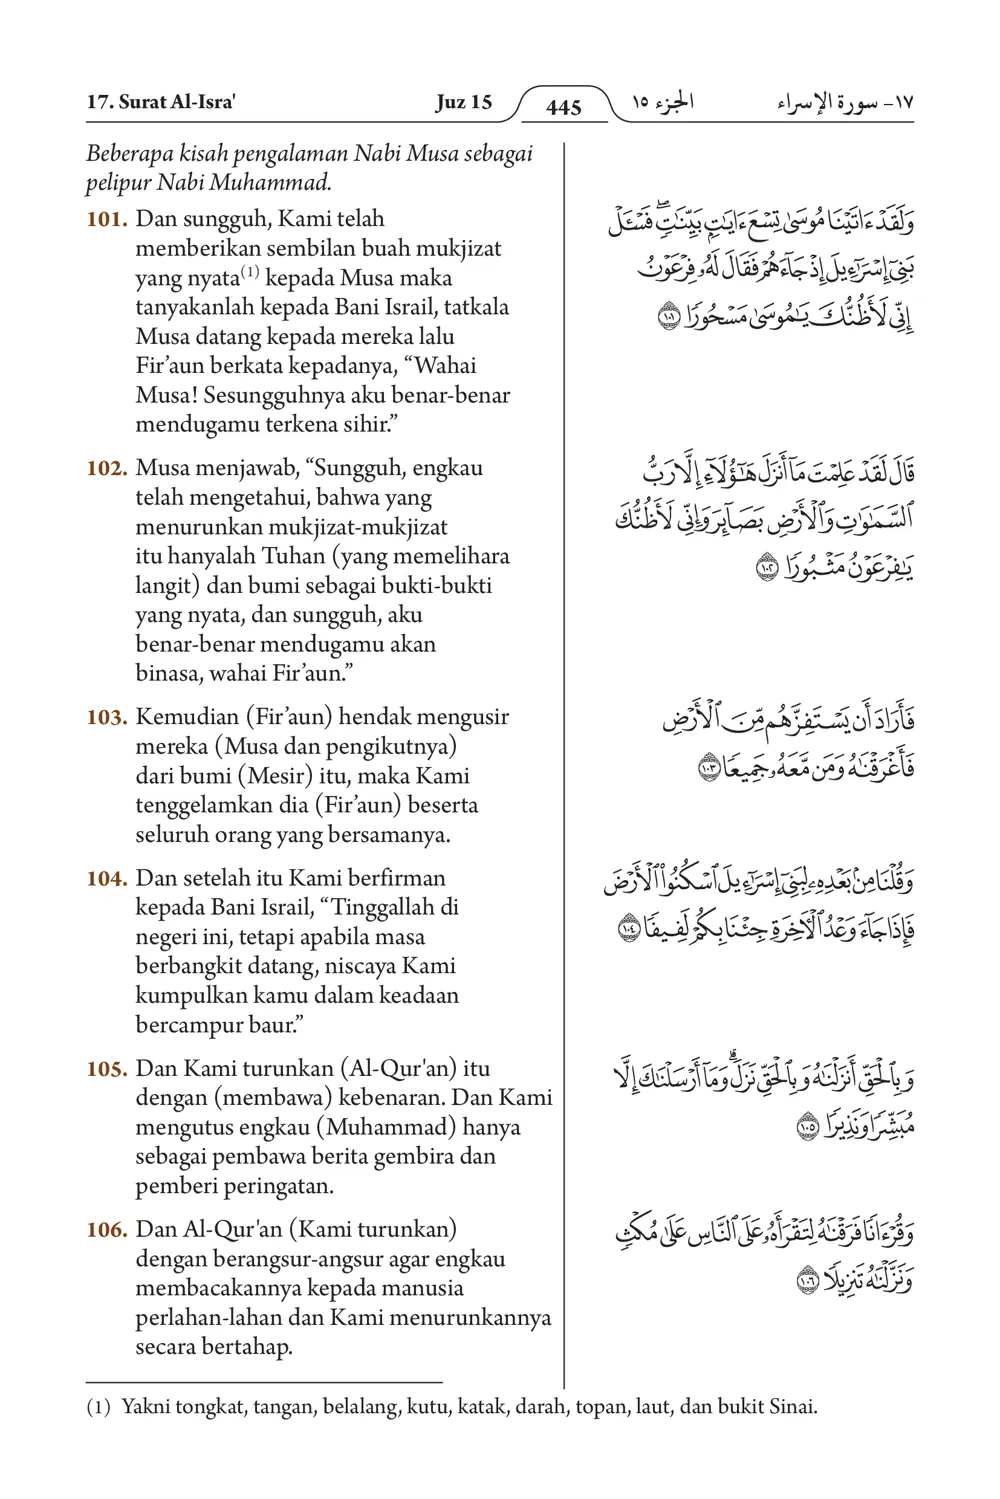 17. Surat Al-Isra'
Juz 15
445
الجزء ١٥
١٧- سورة الإسراء
Beberapa kisah pengalaman Nabi Musa sebagai
pelipur Nabi Muhammad.
101. Dan sungguh, Kami telah
memberikan sembilan buah mukjizat
yang nyata(1) kepada Musa maka
tanyakanlah kepada Bani Israil, tatkala
Musa datang kepada mereka lalu
Fir’aun berkata kepadanya, “Wahai
Musa! Sesungguhnya aku benar-benar
mendugamu terkena sihir.”
وَلَقَدۡ ءَاتَيۡنَا مُوسَىٰ تِسۡعَ ءَايَٰتِۭ بَيِّنَٰتٖۖ فَسۡـَٔلۡ
بَنِيٓ إِسۡرَٰٓءِيلَ إِذۡ جَآءَهُمۡ فَقَالَ لَهُۥ فِرۡعَوۡنُ
إِنِّي لَأَظُنُّكَ يَٰمُوسَىٰ مَسۡحُورٗا ١٠١
102. Musa menjawab, “Sungguh, engkau
telah mengetahui, bahwa yang
menurunkan mukjizat-mukjizat
itu hanyalah Tuhan (yang memelihara
langit) dan bumi sebagai bukti-bukti
yang nyata, dan sungguh, aku
benar-benar mendugamu akan
binasa, wahai Fir’aun.”
قَالَ لَقَدۡ عَلِمۡتَ مَآ أَنزَلَ هَٰٓؤُلَآءِ إِلَّا رَبُّ
ٱلسَّمَٰوَٰتِ وَٱلۡأَرۡضِ بَصَآئِرَ وَإِنِّي لَأَظُنُّكَ
يَٰفِرۡعَوۡنُ مَثۡبُورٗا ١٠٢
103. Kemudian (Fir’aun) hendak mengusir
mereka (Musa dan pengikutnya)
dari bumi (Mesir) itu, maka Kami
tenggelamkan dia (Fir’aun) beserta
seluruh orang yang bersamanya.
فَأَرَادَ أَن يَسۡتَفِزَّهُم مِّنَ ٱلۡأَرۡضِ
فَأَغۡرَقۡنَٰهُ وَمَن مَّعَهُۥ جَمِيعٗا ١٠٣
104. Dan setelah itu Kami berfirman
kepada Bani Israil, “Tinggallah di
negeri ini, tetapi apabila masa
berbangkit datang, niscaya Kami
kumpulkan kamu dalam keadaan
bercampur baur.”
وَقُلۡنَا مِنۢ بَعۡدِهِۦ لِبَنِيٓ إِسۡرَٰٓءِيلَ ٱسۡكُنُواْ ٱلۡأَرۡضَ
فَإِذَا جَآءَ وَعۡدُ ٱلۡأٓخِرَةِ جِئۡنَا بِكُمۡ لَفِيفٗا ١٠٤
105. Dan Kami turunkan (Al-Qur'an) itu
dengan (membawa) kebenaran. Dan Kami
mengutus engkau (Muhammad) hanya
sebagai pembawa berita gembira dan
pemberi peringatan.
وَبِٱلۡحَقِّ أَنزَلۡنَٰهُ وَبِٱلۡحَقِّ نَزَلَۗ وَمَآ أَرۡسَلۡنَٰكَ إِلَّا
مُبَشِّرٗا وَنَذِيرٗا ١٠٥
106. Dan Al-Qur'an (Kami turunkan)
dengan berangsur-angsur agar engkau
membacakannya kepada manusia
perlahan-lahan dan Kami menurunkannya
secara bertahap.
وَقُرۡءَانٗا فَرَقۡنَٰهُ لِتَقۡرَأَهُۥ عَلَى ٱلنَّاسِ عَلَىٰ مُكۡثٖ
وَنَزَّلۡنَٰهُ تَنزِيلٗا ١٠٦
(1) Yakni tongkat, tangan, belalang, kutu, katak, darah, topan, laut, dan bukit Sinai.